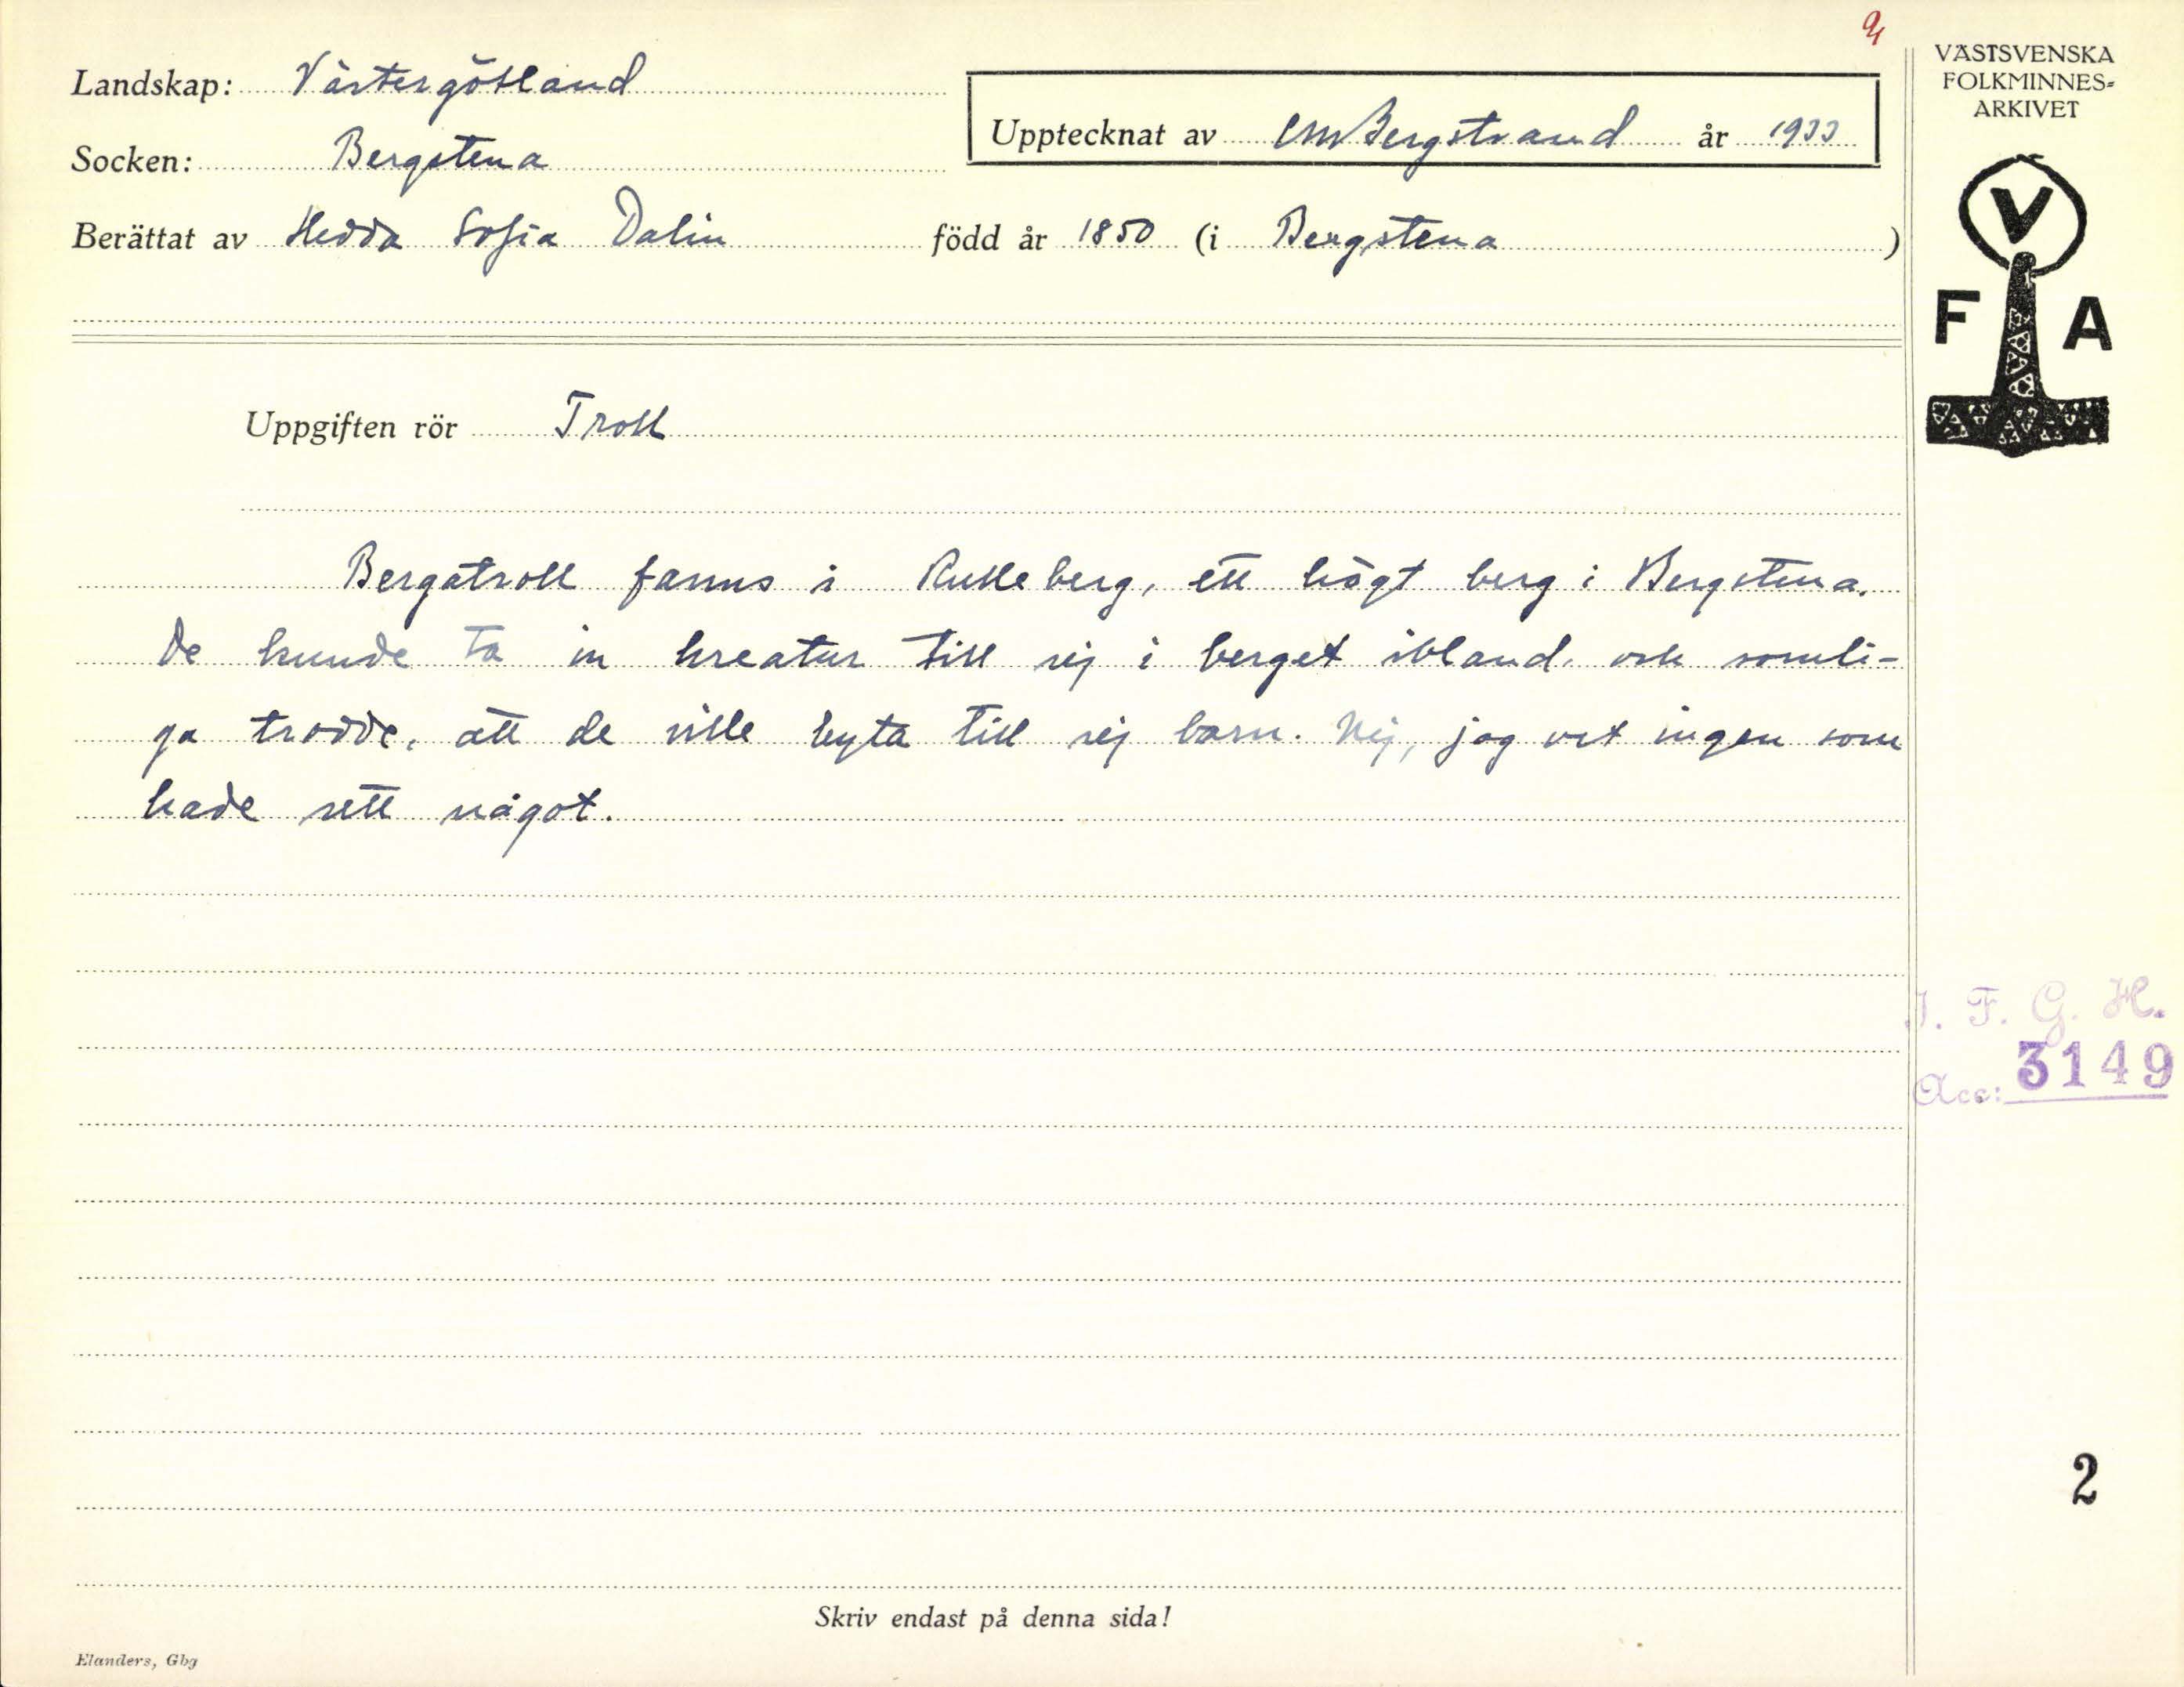 VÄSTSVENSKA
FOLKMINNES-
ARKIVET
Landskap: Västergötland
Upptecknat av CM Bergstrand år 1933
Socken: Bergstena
Berättat av Hedda Sofia Dalin född år 1850 (i Bergstena)
V
F A
Uppgiften rör Troll
Bergatroll fanns i Kulleberg, ett högt berg i Bergstena.
De kunde ta in kreatur till sej i berget ibland, och somli-
ga trodde, att de ville byta till sej barn. Nej, jag vet ingen som
hade sett något.
I. F. G. H.
Acc: 3149
2
Skriv endast på denna sida!
Elanders, Gbg